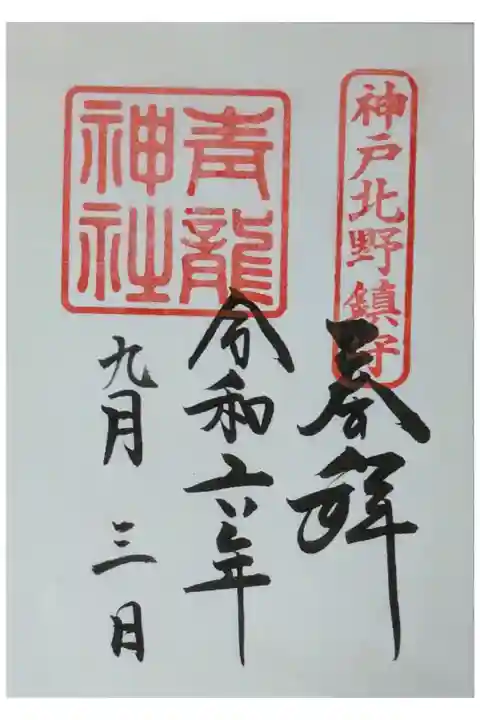 神戸北野鎮守
奉拜
青龍
神社
令和六年
九月三日